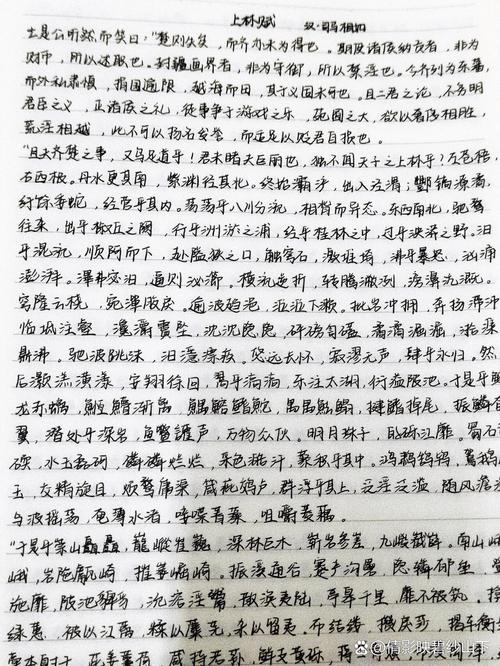 上林赋 汉·司马相如
亡是公听然而笑曰：“楚则失矣，而齐亦未为得也。夫使诸侯纳贡者，非为
财币，所以述职也。封疆画界者，非为守御，所以禁淫也。今齐列为东藩，
而外私肃慎，捐国逾限，越海而田，其于义固未可也。且二君之论，不务明
君臣之义，正诸侯之礼，徒事争于游戏之乐，苑囿之大，欲以奢侈相胜，
荒淫相越，此不可以扬名发誉，而适足以贬君自损也。
“且夫齐楚之事，又乌足道乎！君未睹夫巨丽也，独不闻天子之上林乎？左苍梧，
右西极。丹水更其南，紫渊径其北。终始灞浐，出入泾渭；酆镐潦潏，
纡馀委蛇，经营乎其内。荡荡乎八川分流，相背而异态。东西南北，驰骛
往来，出乎椒丘之阙，行乎洲淤之浦，经乎桂林之中，过乎泱漭之野。汩
乎混流，顺阿而下，赴隘狭之口，触穹石，激堆埼，沸乎暴怒，汹涌
澎湃。
穹隆云桡，宛潬胶戾。逾波趋浥，涖涖下濑。批岩冲拥，奔扬滞沛
临坻注壑，瀺灂霣坠，沈沈隐隐，砰磅訇磕，潏潏淈淈，湁潗
鼎沸。驰波跳沫，汩㶁漂疾。悠远长怀，寂漻无声，肆乎永归。然
后灏溔潢漾，安翔徐回，翯乎滈滈，东注太湖，衍溢陂池。于是乎
龙赤螭，
翼，潜处乎深岩，鱼鳖讙声，万物众伙。明月珠子，的砾江靡。蜀石
碝，水玉磊砢，磷磷烂烂，采色澔汗，藂积乎其中。鸿鹔鹄鸨，
玉，交精旋目，烦鹜庸渠，箴疵鵁卢，群浮乎其上，泛淫泛滥，随风澹
与波摇荡，奄薄水渚，唼喋菁藻，咀嚼菱藕。
“于是乎崇山矗矗，巃嵸崔巍，深林巨木，崭岩参差，九嵕嶻嶭，南山峨
峨，岩陁甗崎，摧崣崛崎。振溪通谷，蹇产沟渎，
施靡，陂池貏豸，沇溶淫鬻，散涣夷陆，亭皋千里，靡不被筑。
绿蕙，被以江蓠，糅以蘼芜，杂以留夷。布结缕，攒戾莎，揭车衡
@倩影映碧纱山下